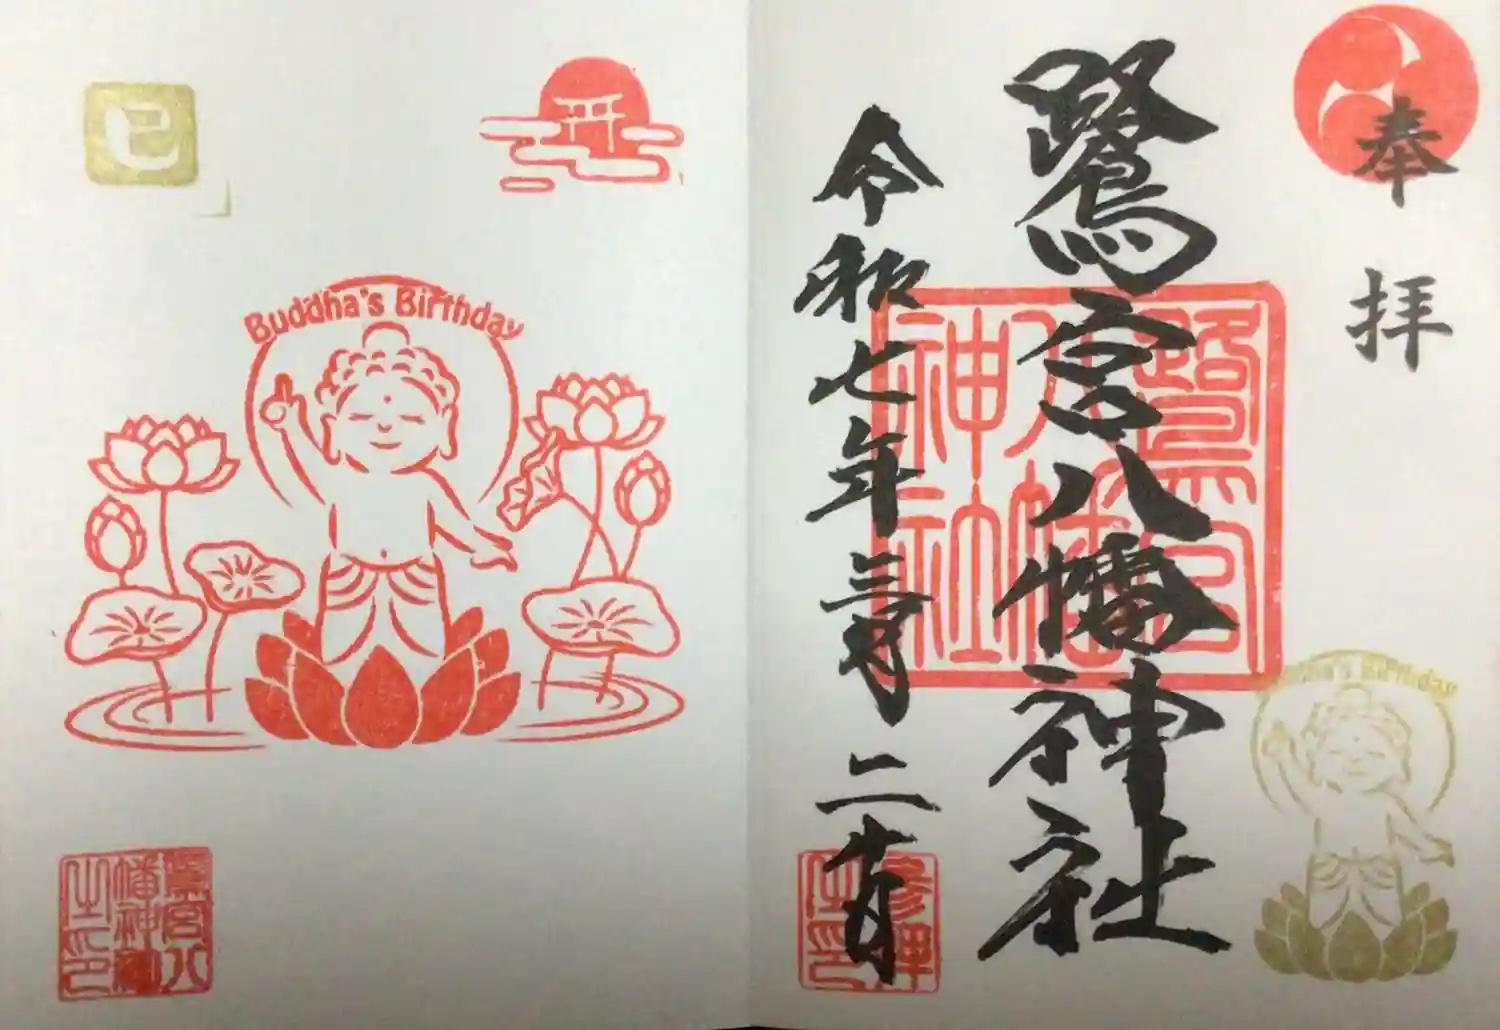 奉拝
鷺宮八幡神社
鷺宮
八幡
神社
令和七年三月二
Buddha's Birthday
巳
Buddha's Birthday
鷺宮八
幡神社
之印